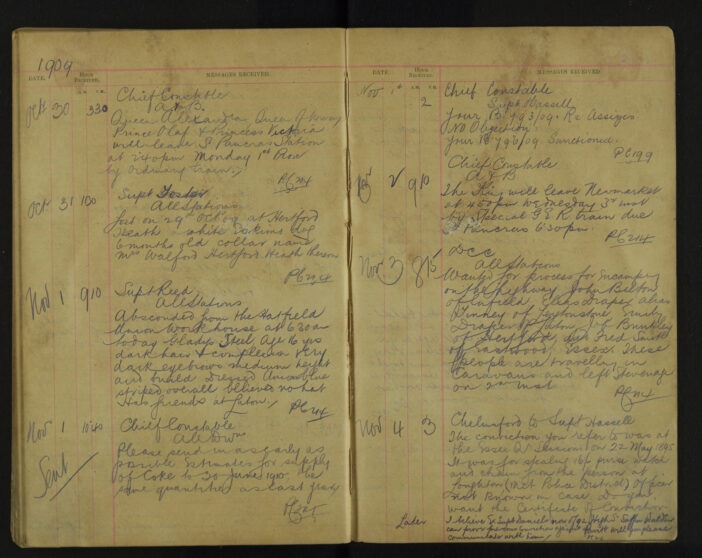 1909
DATE. HOUR RECEIVED. MESSAGES RECEIVED.
A.M. P.M.
Oct 30 330 Chief Constable
A & B.
Queen Alexandra Queen of Norway
Prince Olaf & Princess Victoria
will leave St Pancras Station
at 2.40 pm Monday 1st Prox
by Ordinary train.
Oct 31 100 Supt Foster
All Stations
Lost on 29th Oct 09 at Hertford
Heath a white Eskimo dog
6 months old collar name
Mrs Walford Hertford Heath
Nov 1 910 Supt Reed
All Stations
Absconded from the Hatfield
Union Workhouse at 6.30 am
today Gladys Steel Age 16 yrs
dark hair & complexion very
dark eyebrows medium height
and build Dressed Union blue
striped overall believed no hat
Has friends at Luton.
Nov 1 Chief Constable
Sent
Please send in as early as
possible Estimates for supply
of Coke to 30 June 1910. be
same quantities as last year
DATE. HOUR RECEIVED. MESSAGES RECEIVED.
A.M. P.M.
Nov 1st 2 Chief Constable
Supt Hassell
Your B 793/09. Re Assizes
No Objection.
Your B 790/09 Sanctioned.
PC 199
2 910 Chief Constable
A & B
The King will leave Newmarket
at 4.50 pm Wednesday 3rd inst
by Special G E R train due
St Pancras 6.30 pm.
PC 214
Nov 3 815 DCC
All Stations
Wanted for process for incamping
on the highway John Bilton
of Enfield,
of Leytonstone, Emily
Draper of Luton,
of Hertford, and Fred Smith
of Eastwood, Essex. These
people are travelling in
Caravans and left Stevenage
on 2nd inst
Nov 4 3 Chelmsford to Supt Hassell
The conviction you refer to was at
the Essex Qr Sessions on 22 May 1895
It was for stealing 16/- purse watch
and chain from the person at
Loughton (Met Police District) Officer
not known in case. Do you
want the Certificate of Conviction
Later I believe Supt Daniels
communicate with him